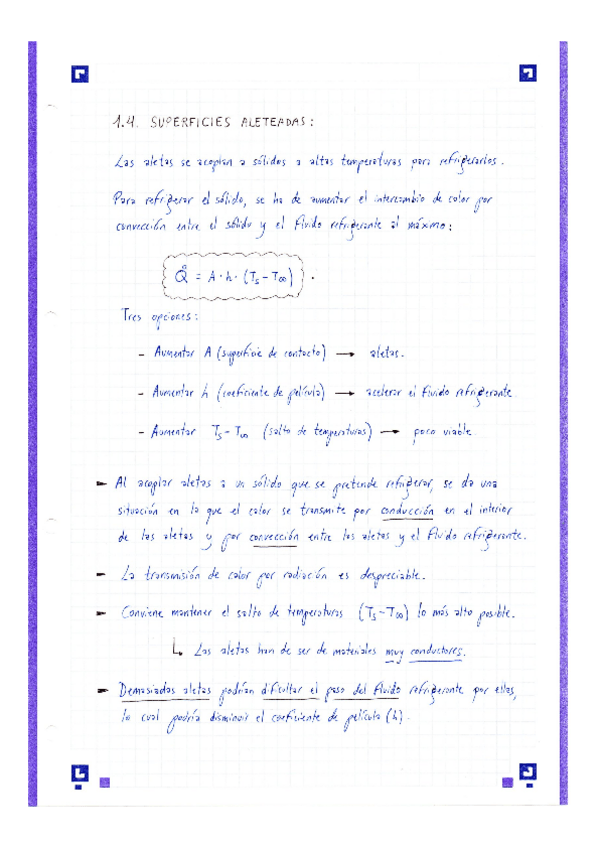 1.4. SUPERFICIES ALETEADAS:
Las aletas se acoplan a sólidos a altas temperaturas para refrigerarlos.
Para refrigerar el sólido, se ha de aumentar el intercambio de calor por
convección entre el sólido y el fluido refrigerante al máximo:
Q̇ = A·h·(Ts-T∞).
Tres opciones:
- Aumentar A (superficie de contacto) → aletas.
- Aumentar h (coeficiente de película) → acelerar el fluido refrigerante
- Aumentar Ts-T∞ (salto de temperaturas) → poco viable
► Al acoplar aletas a un sólido que se pretende refrigerar, se da una
situación en la que el calor se transmite por conducción en el interior
de las aletas y por convección entre las aletas y el fluido refrigerante.
► La transmisión de calor por radiación es despreciable.
► Conviene mantener el salto de temperaturas (Ts-T∞) lo más alto posible.
↳ Las aletas han de ser de materiales muy conductores.
► Demasiadas aletas podrían dificultar el paso del fluido refrigerante por ellas,
lo cual podría disminuir el coeficiente de película (h).